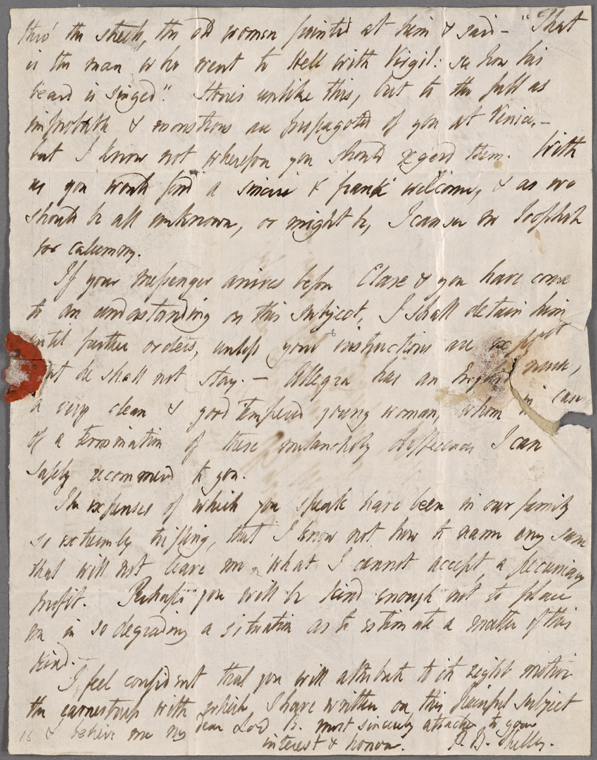 thro' the streets, the old women pointed at him & said - "That
is the man who went to Hell with Virgil: see how his
beard is singed". Stories unlike this, but to the full as
improbable & monstrous are propagated of you at Venice, -
but I know not wherefore you should regard them. With
us you would find a sincere & frank welcome, & as we
should be all unknown, or might be, I can see no loophole
for calumny.
If your messenger arrives before Clare & you have come
to an understanding on this subject, I shall detain him
until further orders, unless your instructions are
he shall not stay. - Allegra has an nurse,
a very clean & good tempered young woman, whom in case
of a termination of these melancholy differences I can
safely recommend to you.
The expenses of which you speak have been in our family
so extremely trifling, that I know not how to name any sum
that will not leave me, what I cannot accept a pecuniary
profit. Perhaps you will be kind enough not to place
me in so degrading a situation as to estimate a matter of this
kind.
I feel confident that you will attribute to its right motive
the earnestness with which I have written on this painful subject
& believe me my dear Lord B. most sincerely attached to your
interest & honour. P. B. Shelley.